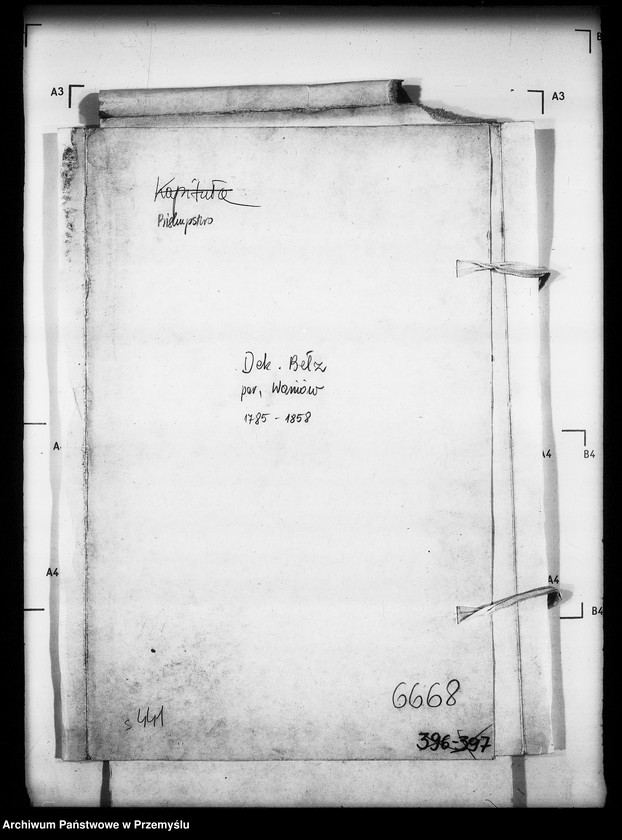 A3
A3
Kapituła
Biskupstwo
Dek. Bełz
par. Waniów
1785 - 1858
A
A4
B4
A4
A4
B4
6668
s 441
396-397
Archiwum Państwowe w Przemyślu